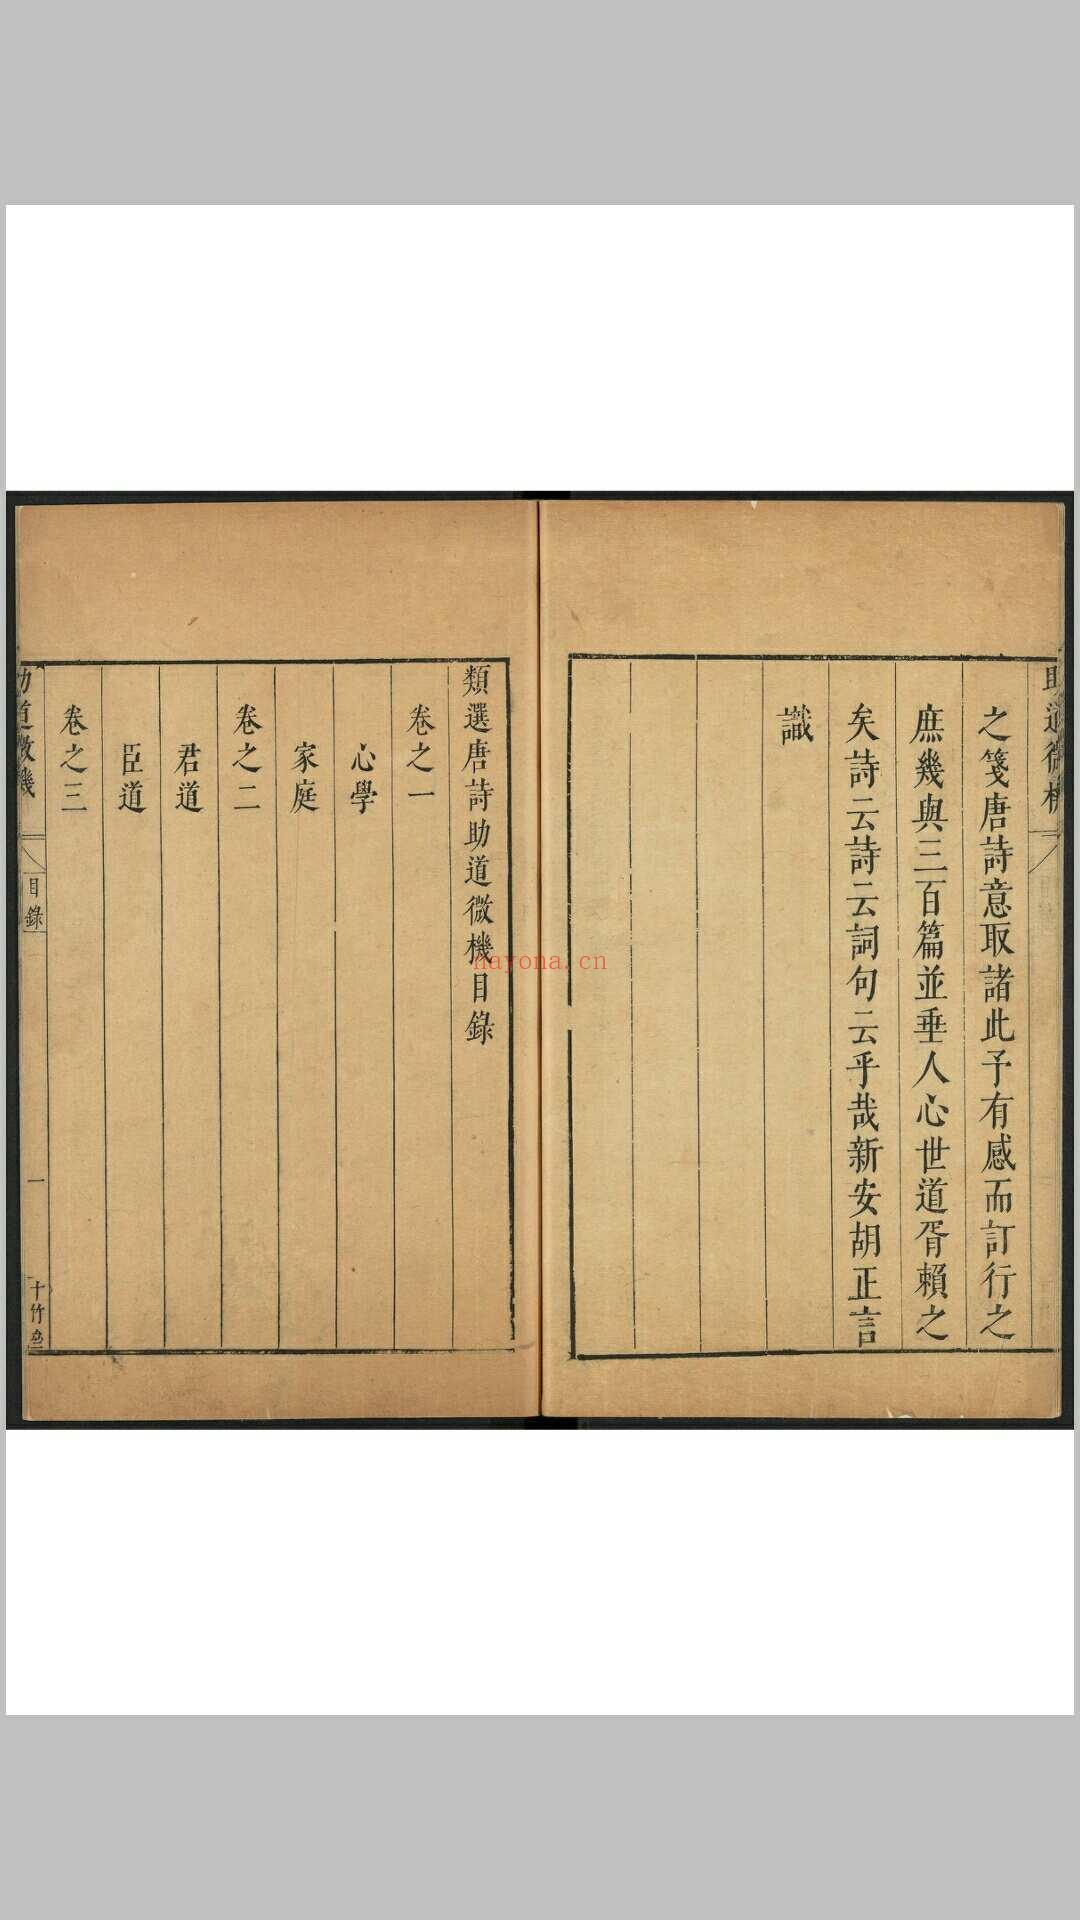 助道微機
之箋唐詩意取諸此予有感而訂行之
庶幾與三百篇並垂人心世道胥賴之
矣詩云詩云詞句云乎哉新安胡正言
識
類選唐詩助道微機目錄
卷之一
心學
家庭
卷之二
君道
臣道
卷之三
助道微機
目錄
一
十竹
nayona.cn